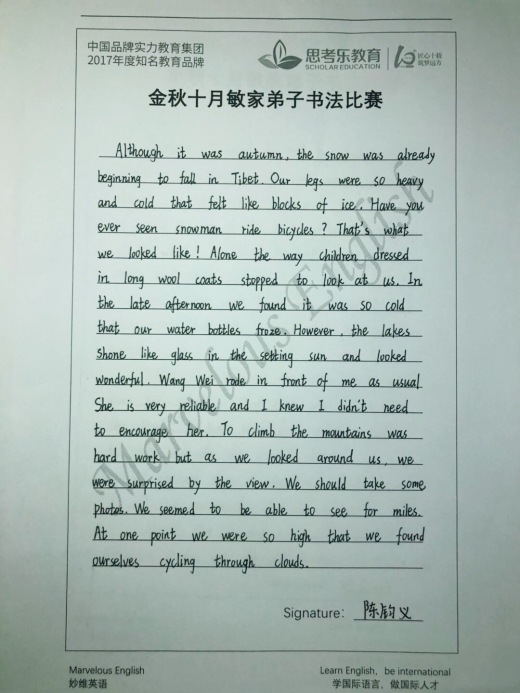 中国品牌实力教育集团
2017年度知名教育品牌
思考乐教育
SCHOLAR EDUCATION
匠心十载
筑梦远方
金秋十月敏家弟子书法比赛
Although it was autumn, the snow was already
beginning to fall in Tibet. Our legs were so heavy
and cold that felt like blocks of ice. Have you
ever seen snowman ride bicycles? That's what
we looked like! Alone the way children dressed
in long wool coats stopped to look at us. In
the late afternoon we found it was so cold
that our water bottles froze. However, the lakes
shone like glass in the setting sun and looked
wonderful. Wang Wei rode in front of me as usual.
She is very reliable and I knew I didn't need
to encourage her. To climb the mountains was
hard work but as we looked around us, we
were surprised by the view. We should take some
photos. We seemed to be able to see for miles.
At one point we were so high that we found
ourselves cycling through clouds.
Marvelous English
Signature: 陈钧义
Marvelous English
妙维英语
Learn English, be international
学国际语言，做国际人才